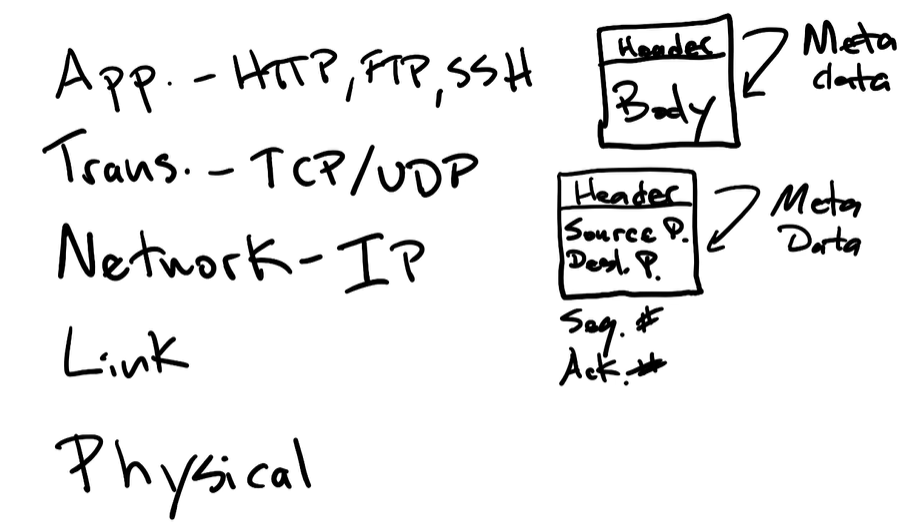 App. - HTTP, FTP, SSH
Trans. - TCP/UDP
Network - IP
Link
Physical
Header
Body
Meta
data
Header
Source P.
Dest. P.
Meta
Data
Seq. #
Ack. #